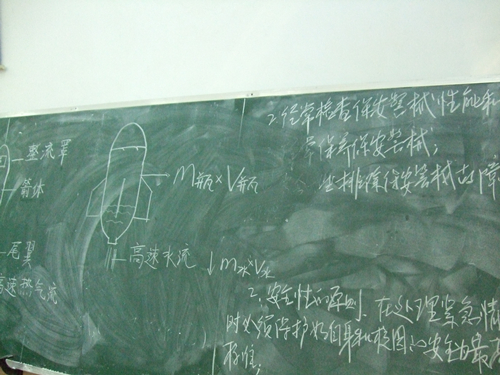 整流罩
箭体
尾翼
高速热气流
M瓶×V瓶
高速水流
↓m水×V水
2.经常检查保安器械性能和
常保养保安器械;
并排除保安器械故障
2.安全性的原则. 在处理紧急情
时必须保护好自身和校园的安全为最高
标准.